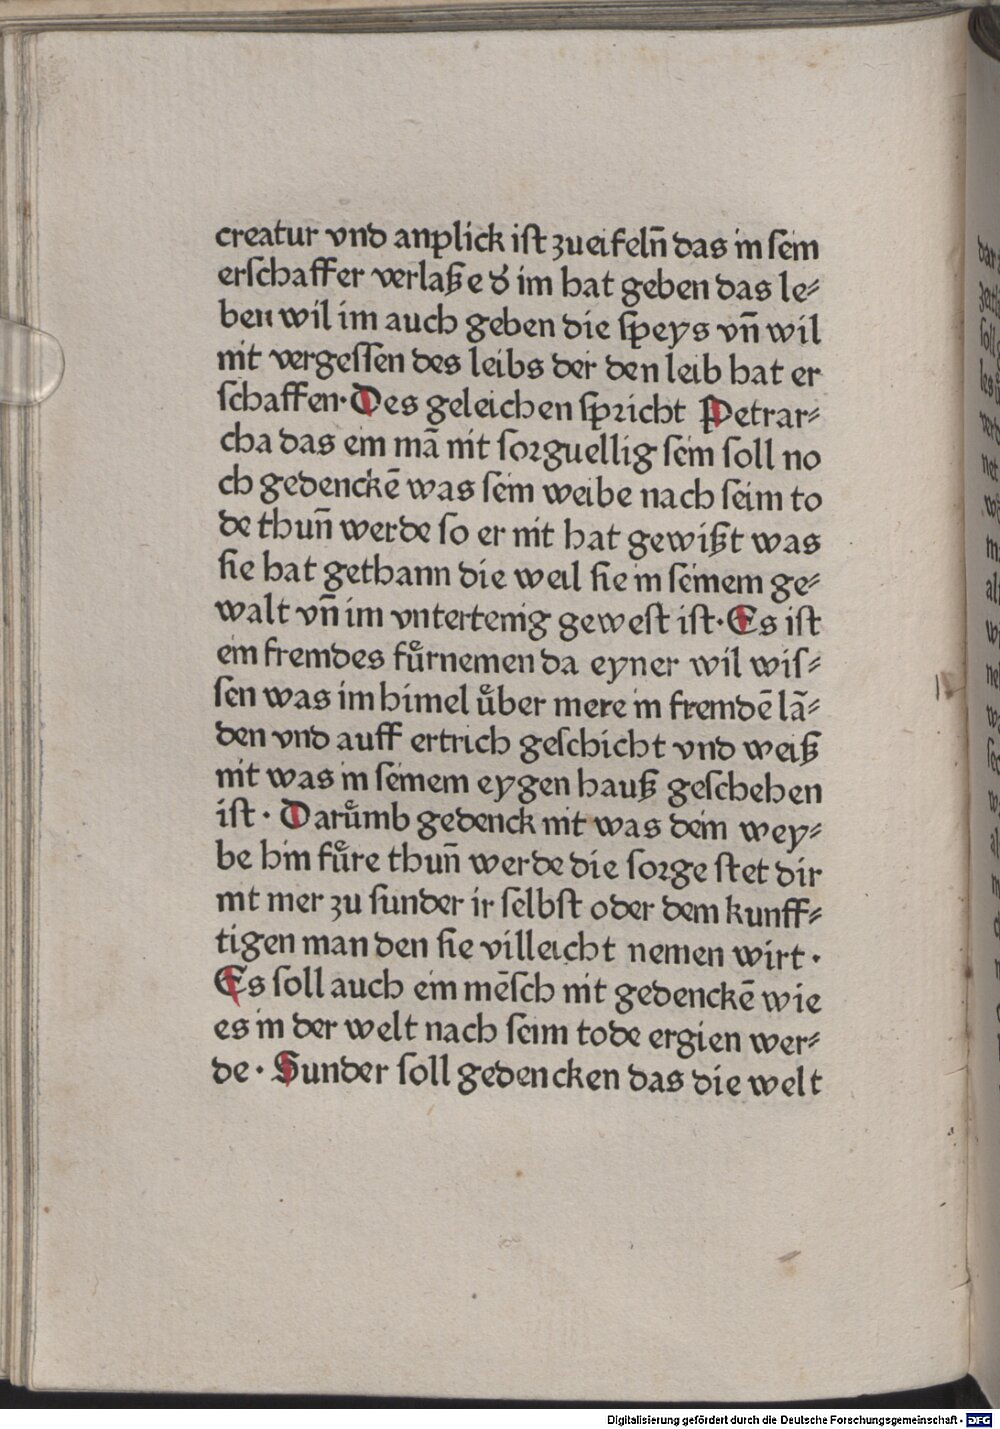 creatur vnd anplick ist zueifeln̄ das in sein
erschaffer verlaße đ im hat geben das le⸗
ben wil im auch geben die speys vn̄ wil
nit vergessen des leibs der den leib hat er
schaffen· Des geleichen spricht Petrar⸗
cha das ein mā nit sorguellig sein soll no
ch gedenckē was sein weibe nach seim to
de thun̄ werde so er nit hat gewißt was
sie hat gethann die weil sie in seinem ge⸗
walt vn̄ im vntertenig gewest ist· Es ist
ein fremdes fuͤrnemen da eyner wil wis⸗
sen was im himel uͤber mere in fremdē lā⸗
den vnd auff ertrich geschicht vnd weiß
nit was in seinem eygen hauß geschehen
ist · Daruͤmb gedenck nit was dein wey⸗
be hin fuͤre thun̄ werde die sorge stet dir
nit mer zu sunder ir selbst oder dem kunff⸗
tigen man den sie villeicht nemen wirt ·
Es soll auch ein mēsch nit gedenckē wie
es in der welt nach seim tode ergien wer⸗
de · Sunder soll gedencken das die welt
Digitalisierung gefördert durch die Deutsche Forschungsgemeinschaft - DFG